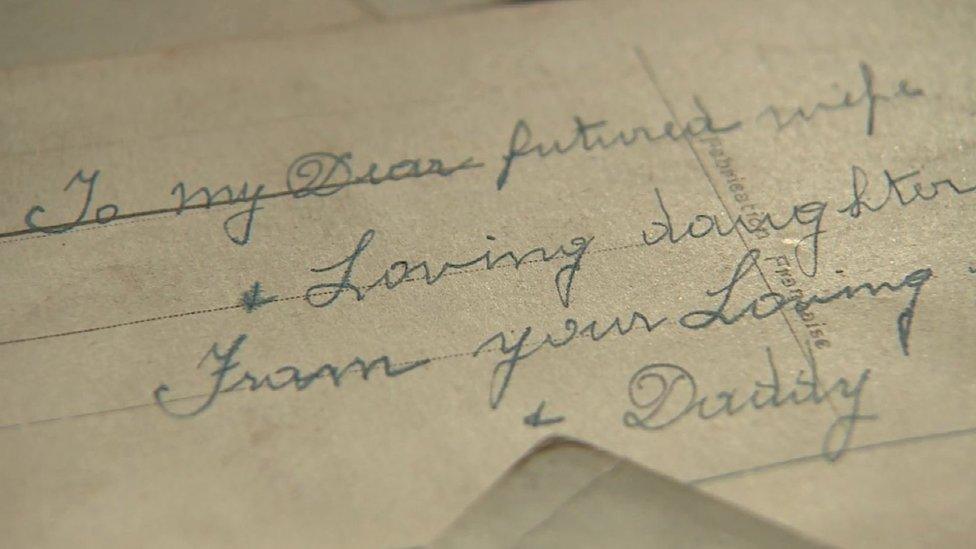 To my Dear futured wife
& Loving daughter
From your Loving
& Daddy
Fabrication Française